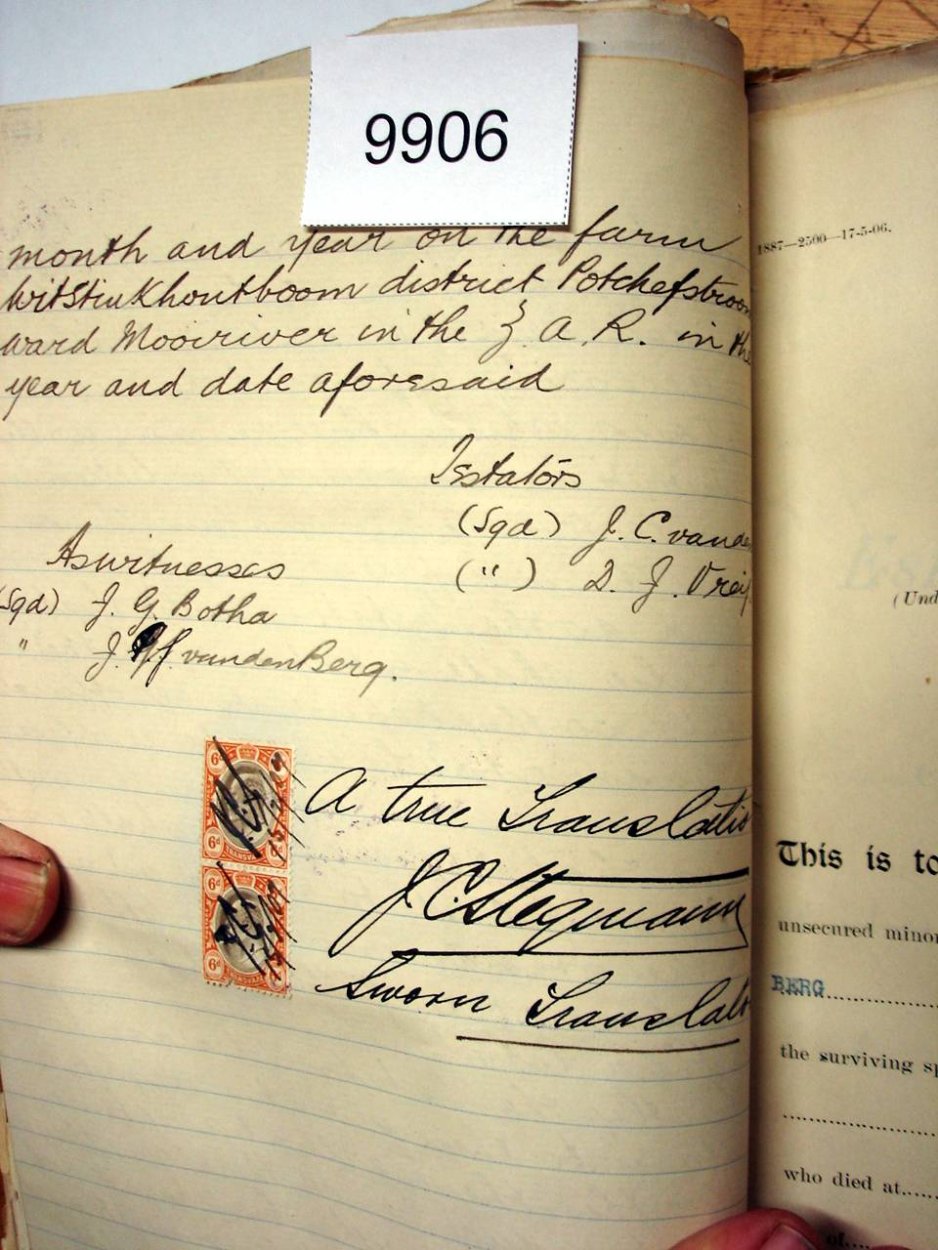 9906
month and year on the farm
Witstinkhoutboom district Potchefstroom
ward Mooiriver in the Z. A. R. in the
year and date aforesaid
Testators
(Sgd) J. C. vande
(") D. J. Vrey
As witnesses
(Sgd) J. G. Botha
" J. vandenBerg.
6d 6d
TRANSVAAL
A true Translatio
J. C. Stegmann
6d 6d
Sworn Translato
1887—2500—17-5-06.
(Und
This is to
unsecured minor
BERG
the surviving sp
who died at
of